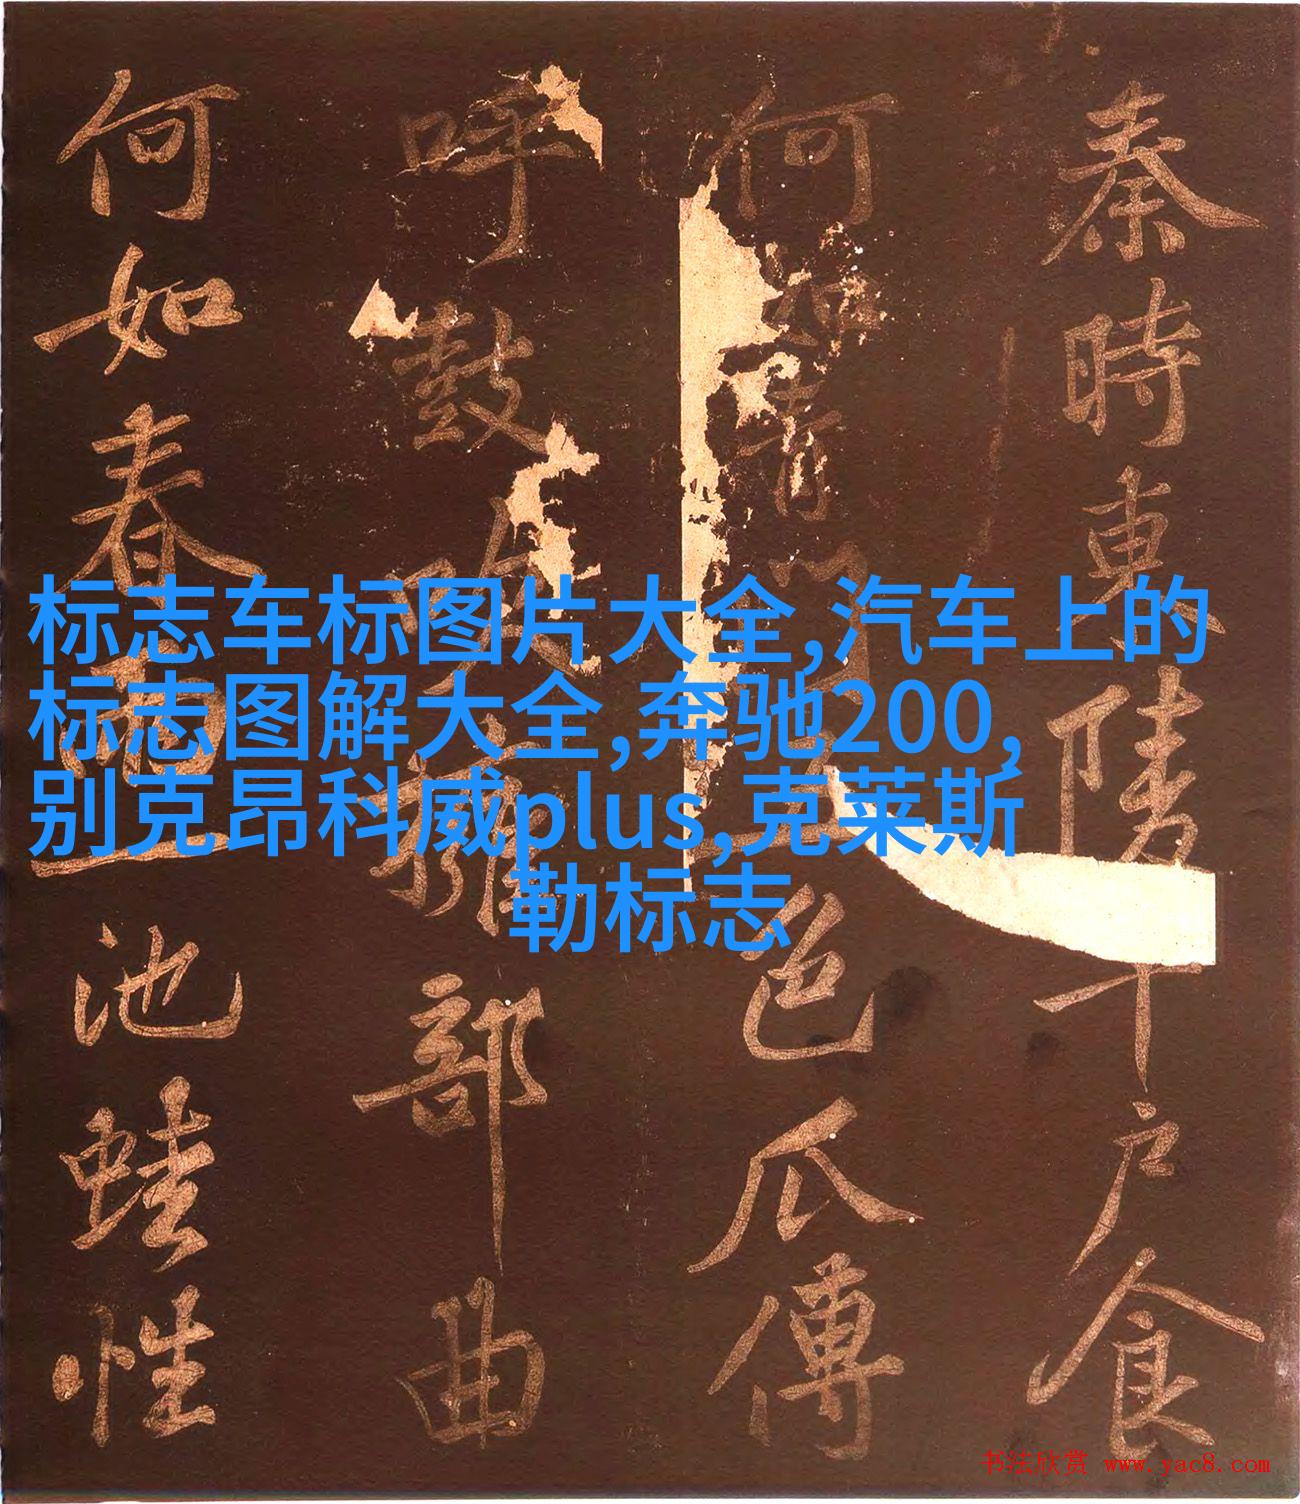 标志车标图片大全,汽车上的
标志图解大全,奔驰200,
别克昂科威plus,克莱斯
勒标志
秦時東陵千户食
何如青門五色瓜傳
呼鼓吹擁部曲
何如春畫一池蛙性
书法欣赏 www.yac8.com